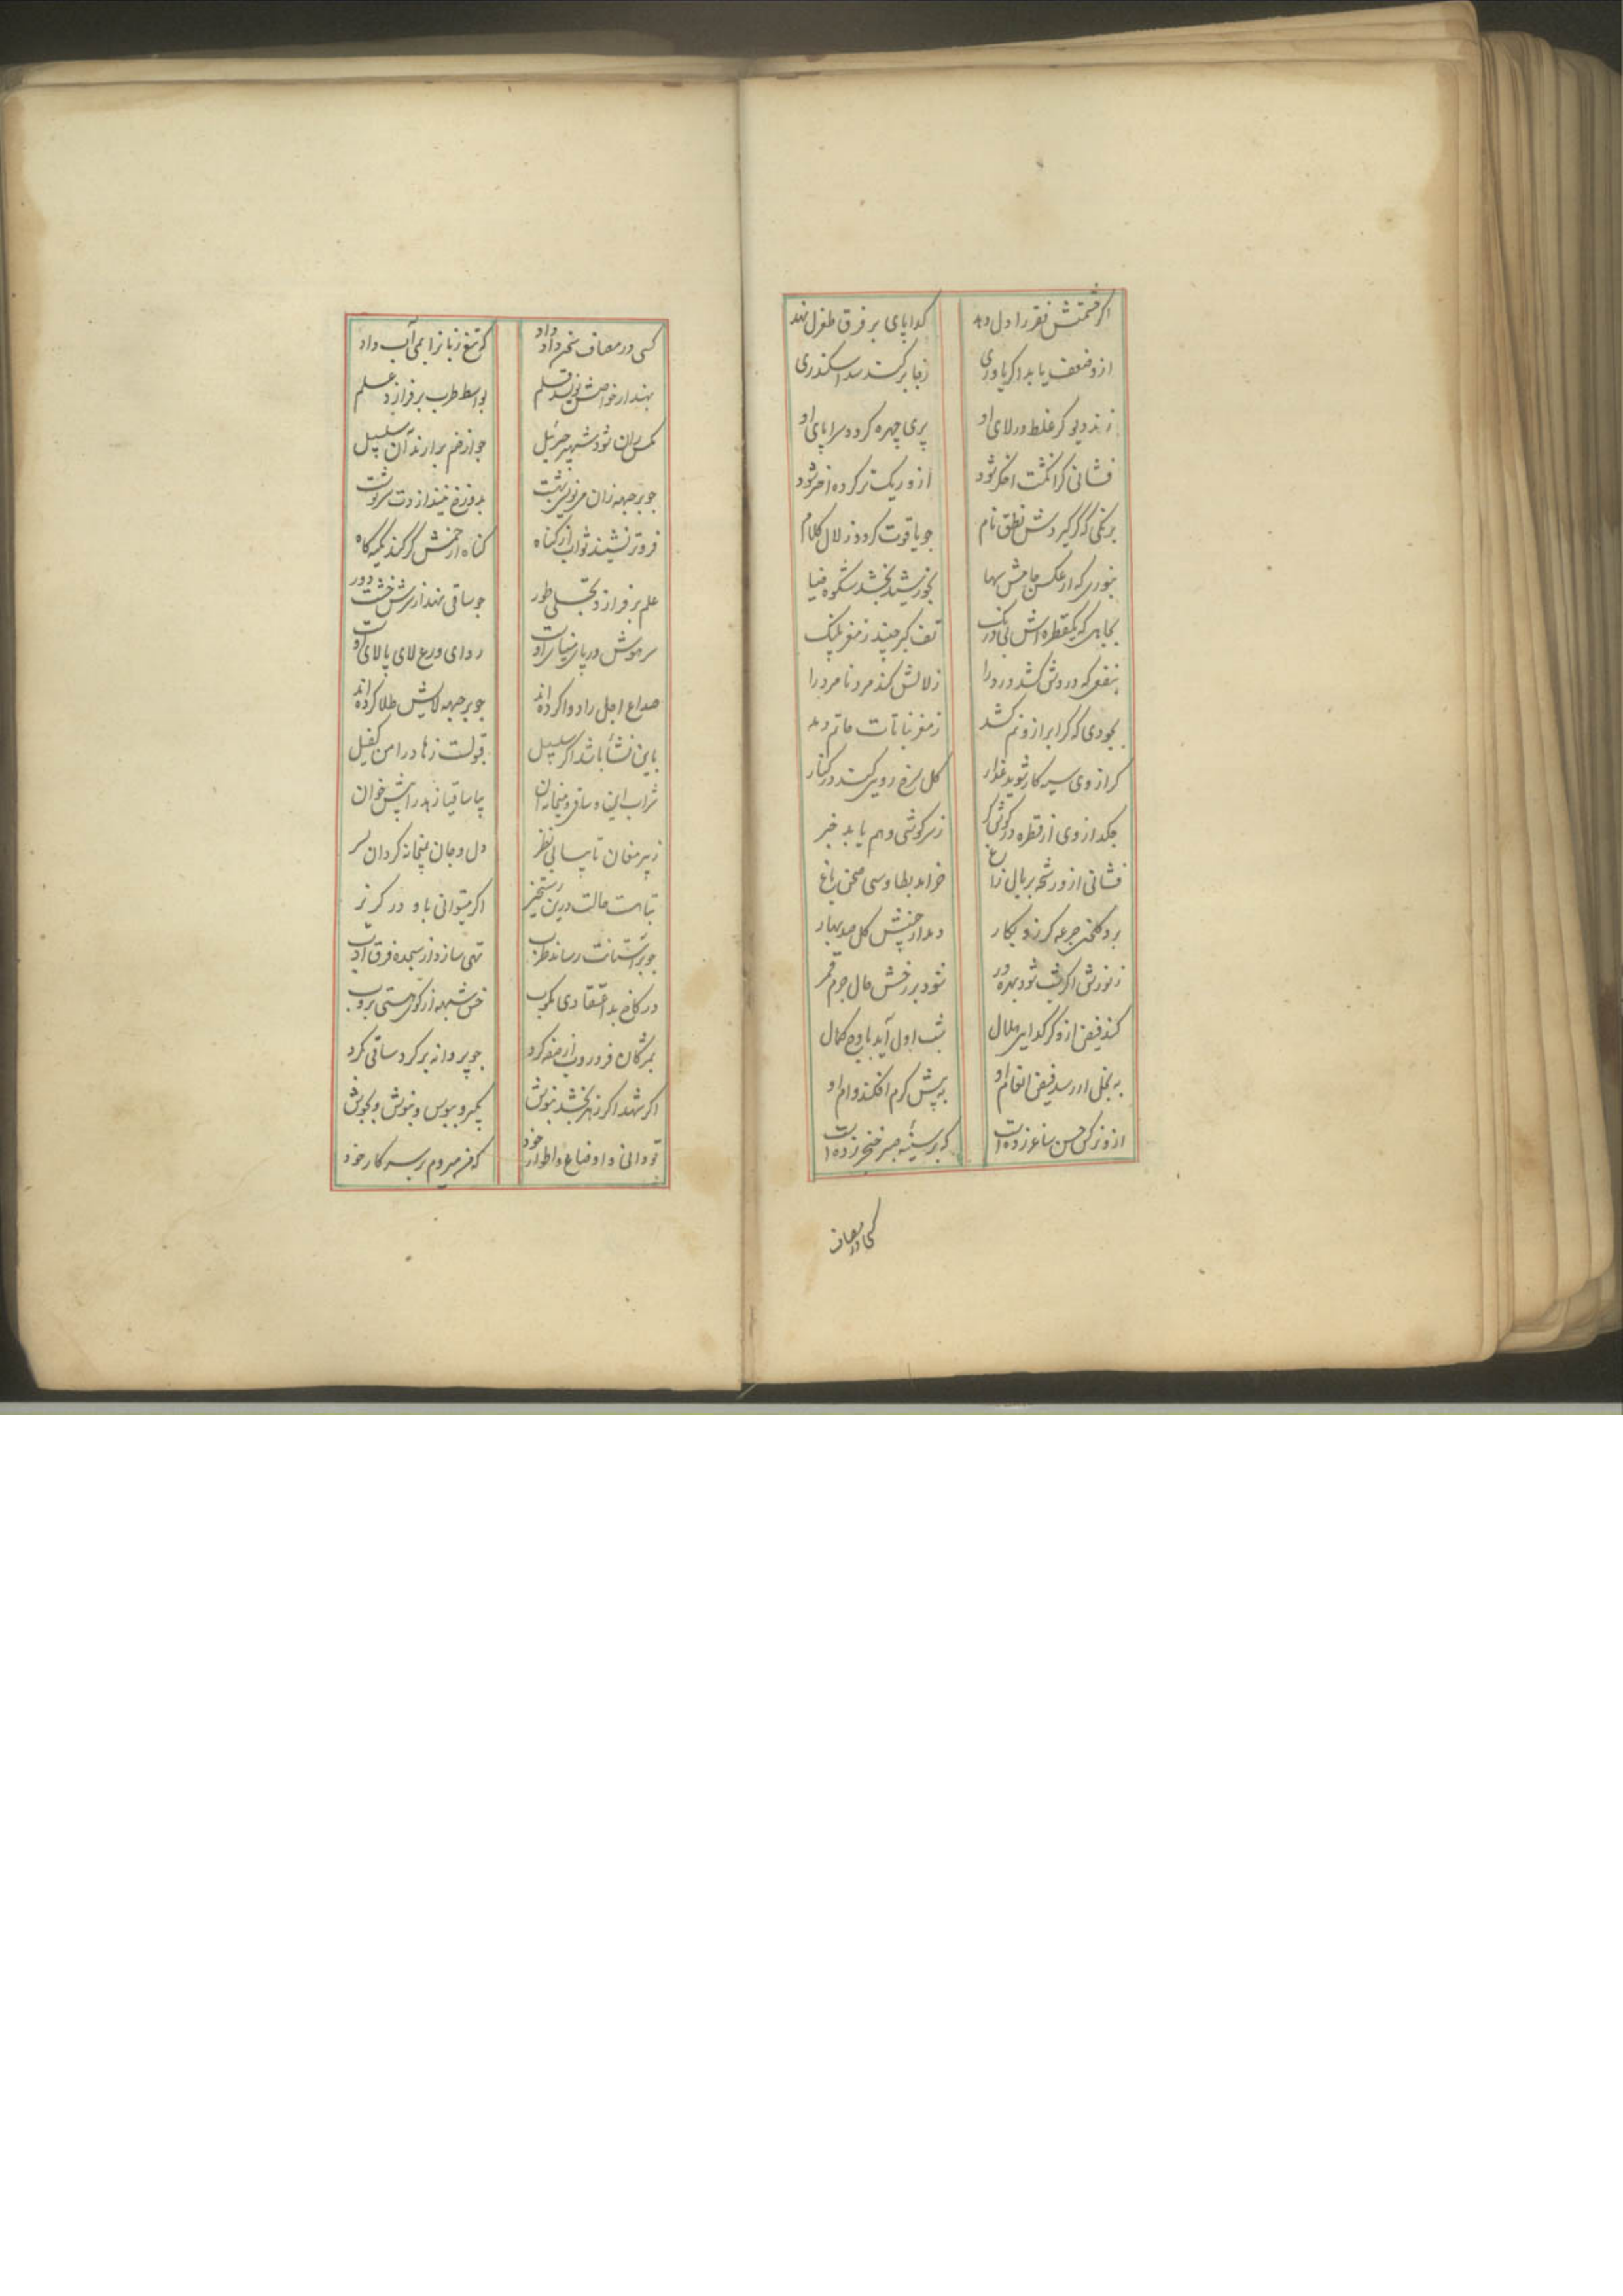 اکر حشمتش فقر را دل دهد
کدا پای بر فرق طغرل نهد
ازو ضعف یابد اکر یاوری
ز جا برکند سد اسکندری
زند دیو کر غلط در لای او
پری چهره کردد سراپای او
فشانی کر انکشت اخکر شود
ازو ریک تر کرده اختر شود
برنکی که کر کیردش نطق نام
چو یاقوت کردد زلال کلام
بنوری که از عکس جامش سها
بخورشید بخشد شکوه ضیا
بجاهی که یکقطره اش بی درنک
تف کبر چیند ز مغز پلنک
بنفعی که دردش کشد درد را
زلالش کند مرد نامرد را
بجودی که کر ابر ازو نم کشد
ز مغز نباتات حاتم دمد
کر از وی سیه کار شوید عذار
کل سرخ روییش کند در کنار
چکد از وی ار قطره در کوش کر
ز سرکوشی وهم یابد خبر
فشانی ازو رشحه بر بال زاغ
خرامد بطاوسی صحن باغ
برد کلخن جرعه کر زو بکار
دمد از خسش کل صد بهار
ز نورش اکر شب شود بهره ور
شود بر رخش خال جرم قمر
کند فیض ازو کر کدایی هلال
شب اول آید باوج کمال
به بخل ار رسد فیض انعام او
به پیش کرم افکند وام او
ازو نرکس حسن ساغر زده است
که بر سینه صبر خنجر زده است
کسی در مصاف
کسی در مصاف سخن داد داد
که تیغ زبانرا بمی آب داد
بهندار خواصش نویسد قلم
بواسط طرب برفرازد علم
مکس ران شود شهپر جبرئیل
چو از خم برآرند آن سلسبیل
چو بر جبهه زان می نویسی بهشت
بدوزخ نیندازدت سرنوشت
فروتر نشیند ثواب از کناه
کناه ار خمش کر کند تکیه کاه
علم برفرازد تجلی طور
چو ساقی نهد از سرش خشت دور
سر هوش در پای مینای اوست
ردای ورع لای پالای اوست
صداع اجل را دوا کرده اند
چو بر جبهه لایش طلا کرده اند
باین نشأ باشد اکر سلسبیل
قبولست زهاد را من کفیل
شراب این و ساقی و میخانه آن
بیا ساقیا زهد را پیش خوان
ز پیر مغان تا بیابی نظر
دل و جان بمیخانه کردان سر
تباهست حالت درین رستخیز
اکر میتوانی باو در کریز
چو بر آستانت رساند طرب
تهی سازد از سجده فرق ادب
در کاخ بد اعتقادی بکوب
خس شبهه از کوی هستی بروب
بمژکان فرو روب از صفه کرد
چو پروانه بر کرد ساقی بکرد
اکر شهد اکر زهر بخشد بنوش
بکیر و ببوس و بنوش و بجوش
تو دانی و اوضاع و اطوار خود
که من میروم بر سر کار خود